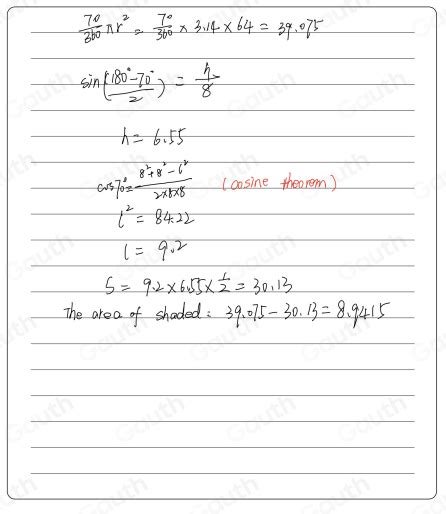 70/360 πr² = 70/360 × 3.14 × 64 = 39.075
sin((180°-70°)/2) = h/8
h = 6.55
cos70° = (8²+8²-l²)/(2×8×8) (cosine theorem)
l² = 84.22
l = 9.2
S = 9.2 × 6.55 × 1/2 = 30.13
The area of shaded: 39.075 - 30.13 = 8.9415